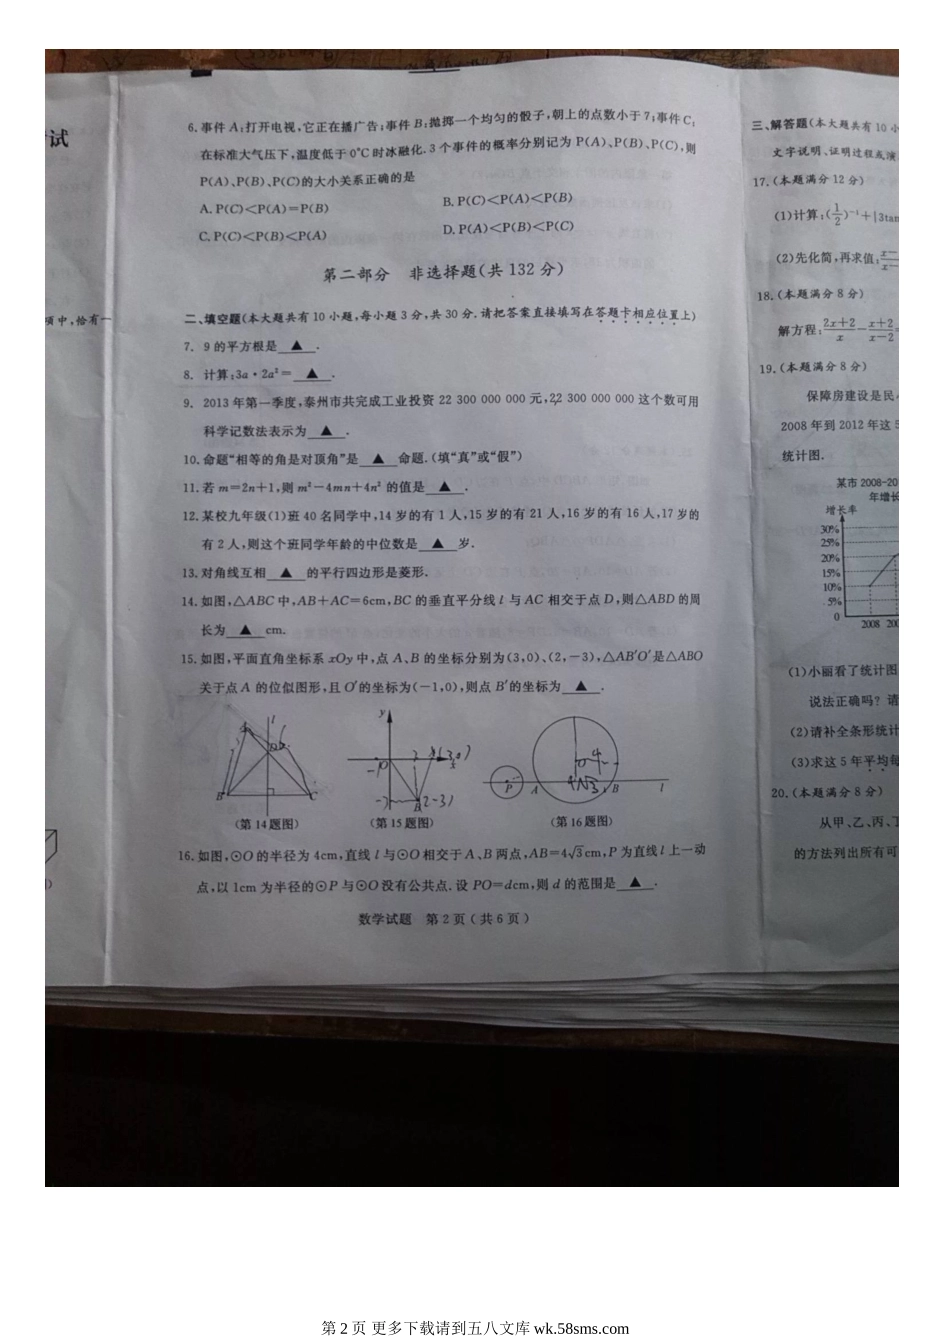 试
项中,恰有一
6.事件 A:打开电视,它正在播广告;事件 B:抛掷一个均匀的骰子,朝上的点数小于 7;事件 C:
在标准大气压下,温度低于 0℃ 时冰融化. 3 个事件的概率分别记为 P(A)、P(B)、P(C),则
P(A)、P(B)、P(C)的大小关系正确的是
A. P(C)<P(A)=P(B)
B. P(C)<P(A)<P(B)
C. P(C)<P(B)<P(A)
D. P(A)<P(B)<P(C)
第二部分 非选择题(共 132 分)
二、填空题(本大题共有 10 小题,每小题 3 分,共 30 分.请把答案直接填写在答题卡相应位置上)
7. 9 的平方根是 ▲ .
8. 计算:3a·2a²= ▲ .
9. 2013 年第一季度,泰州市共完成工业投资 22 300 000 000 元,22 300 000 000 这个数可用
科学记数法表示为 ▲ .
10.命题“相等的角是对顶角”是 ▲ 命题.(填“真”或“假”)
11.若 m=2n+1,则 m²-4mn+4n² 的值是 ▲ .
12.某校九年级(1)班 40 名同学中,14 岁的有 1 人,15 岁的有 21 人,16 岁的有 16 人,17 岁的
有 2 人,则这个班同学年龄的中位数是 ▲ 岁.
13.对角线互相 ▲ 的平行四边形是菱形.
14.如图,△ABC 中,AB+AC=6cm,BC 的垂直平分线 l 与 AC 相交于点 D,则△ABD 的周
长为 ▲ cm.
15.如图,平面直角坐标系 xOy 中,点 A、B 的坐标分别为(3,0)、(2,-3),△AB′O′是△ABO
关于点 A 的位似图形,且 O′的坐标为(-1,0),则点 B′的坐标为 ▲ .
A l D 6
B C
y
-1 O 3 A(3,0) x
-3 B(2-3)
O 4
P A 4√3 B l
(第 14 题图) (第 15 题图) (第 16 题图)
16.如图,⊙O 的半径为 4cm,直线 l 与⊙O 相交于 A、B 两点,AB=4√3cm,P 为直线 l 上一动
点,以 1cm 为半径的⊙P 与⊙O 没有公共点.设 PO=dcm,则 d 的范围是 ▲ .
数学试题 第 2 页(共 6 页)
三、解答题(本大题共有 10 小
文字说明、证明过程或演
17.(本题满分 12 分)
(1)计算:(1/2)⁻¹+|3tan
(2)先化简,再求值:
18.(本题满分 8 分)
解方程:(2x+2)/x-(x+2)/(x-2)=
19.(本题满分 8 分)
保障房建设是民
2008 年到 2012 年这 5
统计图.
某市 2008-20
年增长
增长率
30%
25%
20%
15%
10%
5%
0
2008 200
(1)小丽看了统计图
说法正确吗? 请
(2)请补全条形统计
(3)求这 5 年平均每
20.(本题满分 8 分)
从甲、乙、丙、丁
的方法列出所有可
第 2 页 更多下载请到五八文库 wk.58sms.com